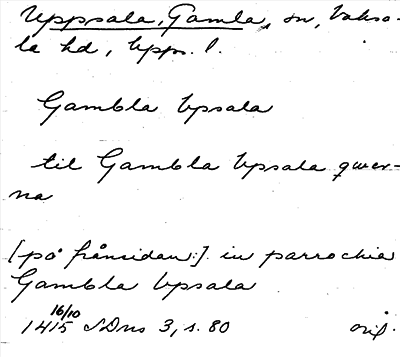 Uppsala, Gamla, sn, Vaksa-
la hd, Upps. l.
Gambla Upsala
til Gambla Upsala qwer-
na
[på frånsidan:] in parrochia
Gambla Upsala
16/10
1415 SDns 3, s. 80 orig.